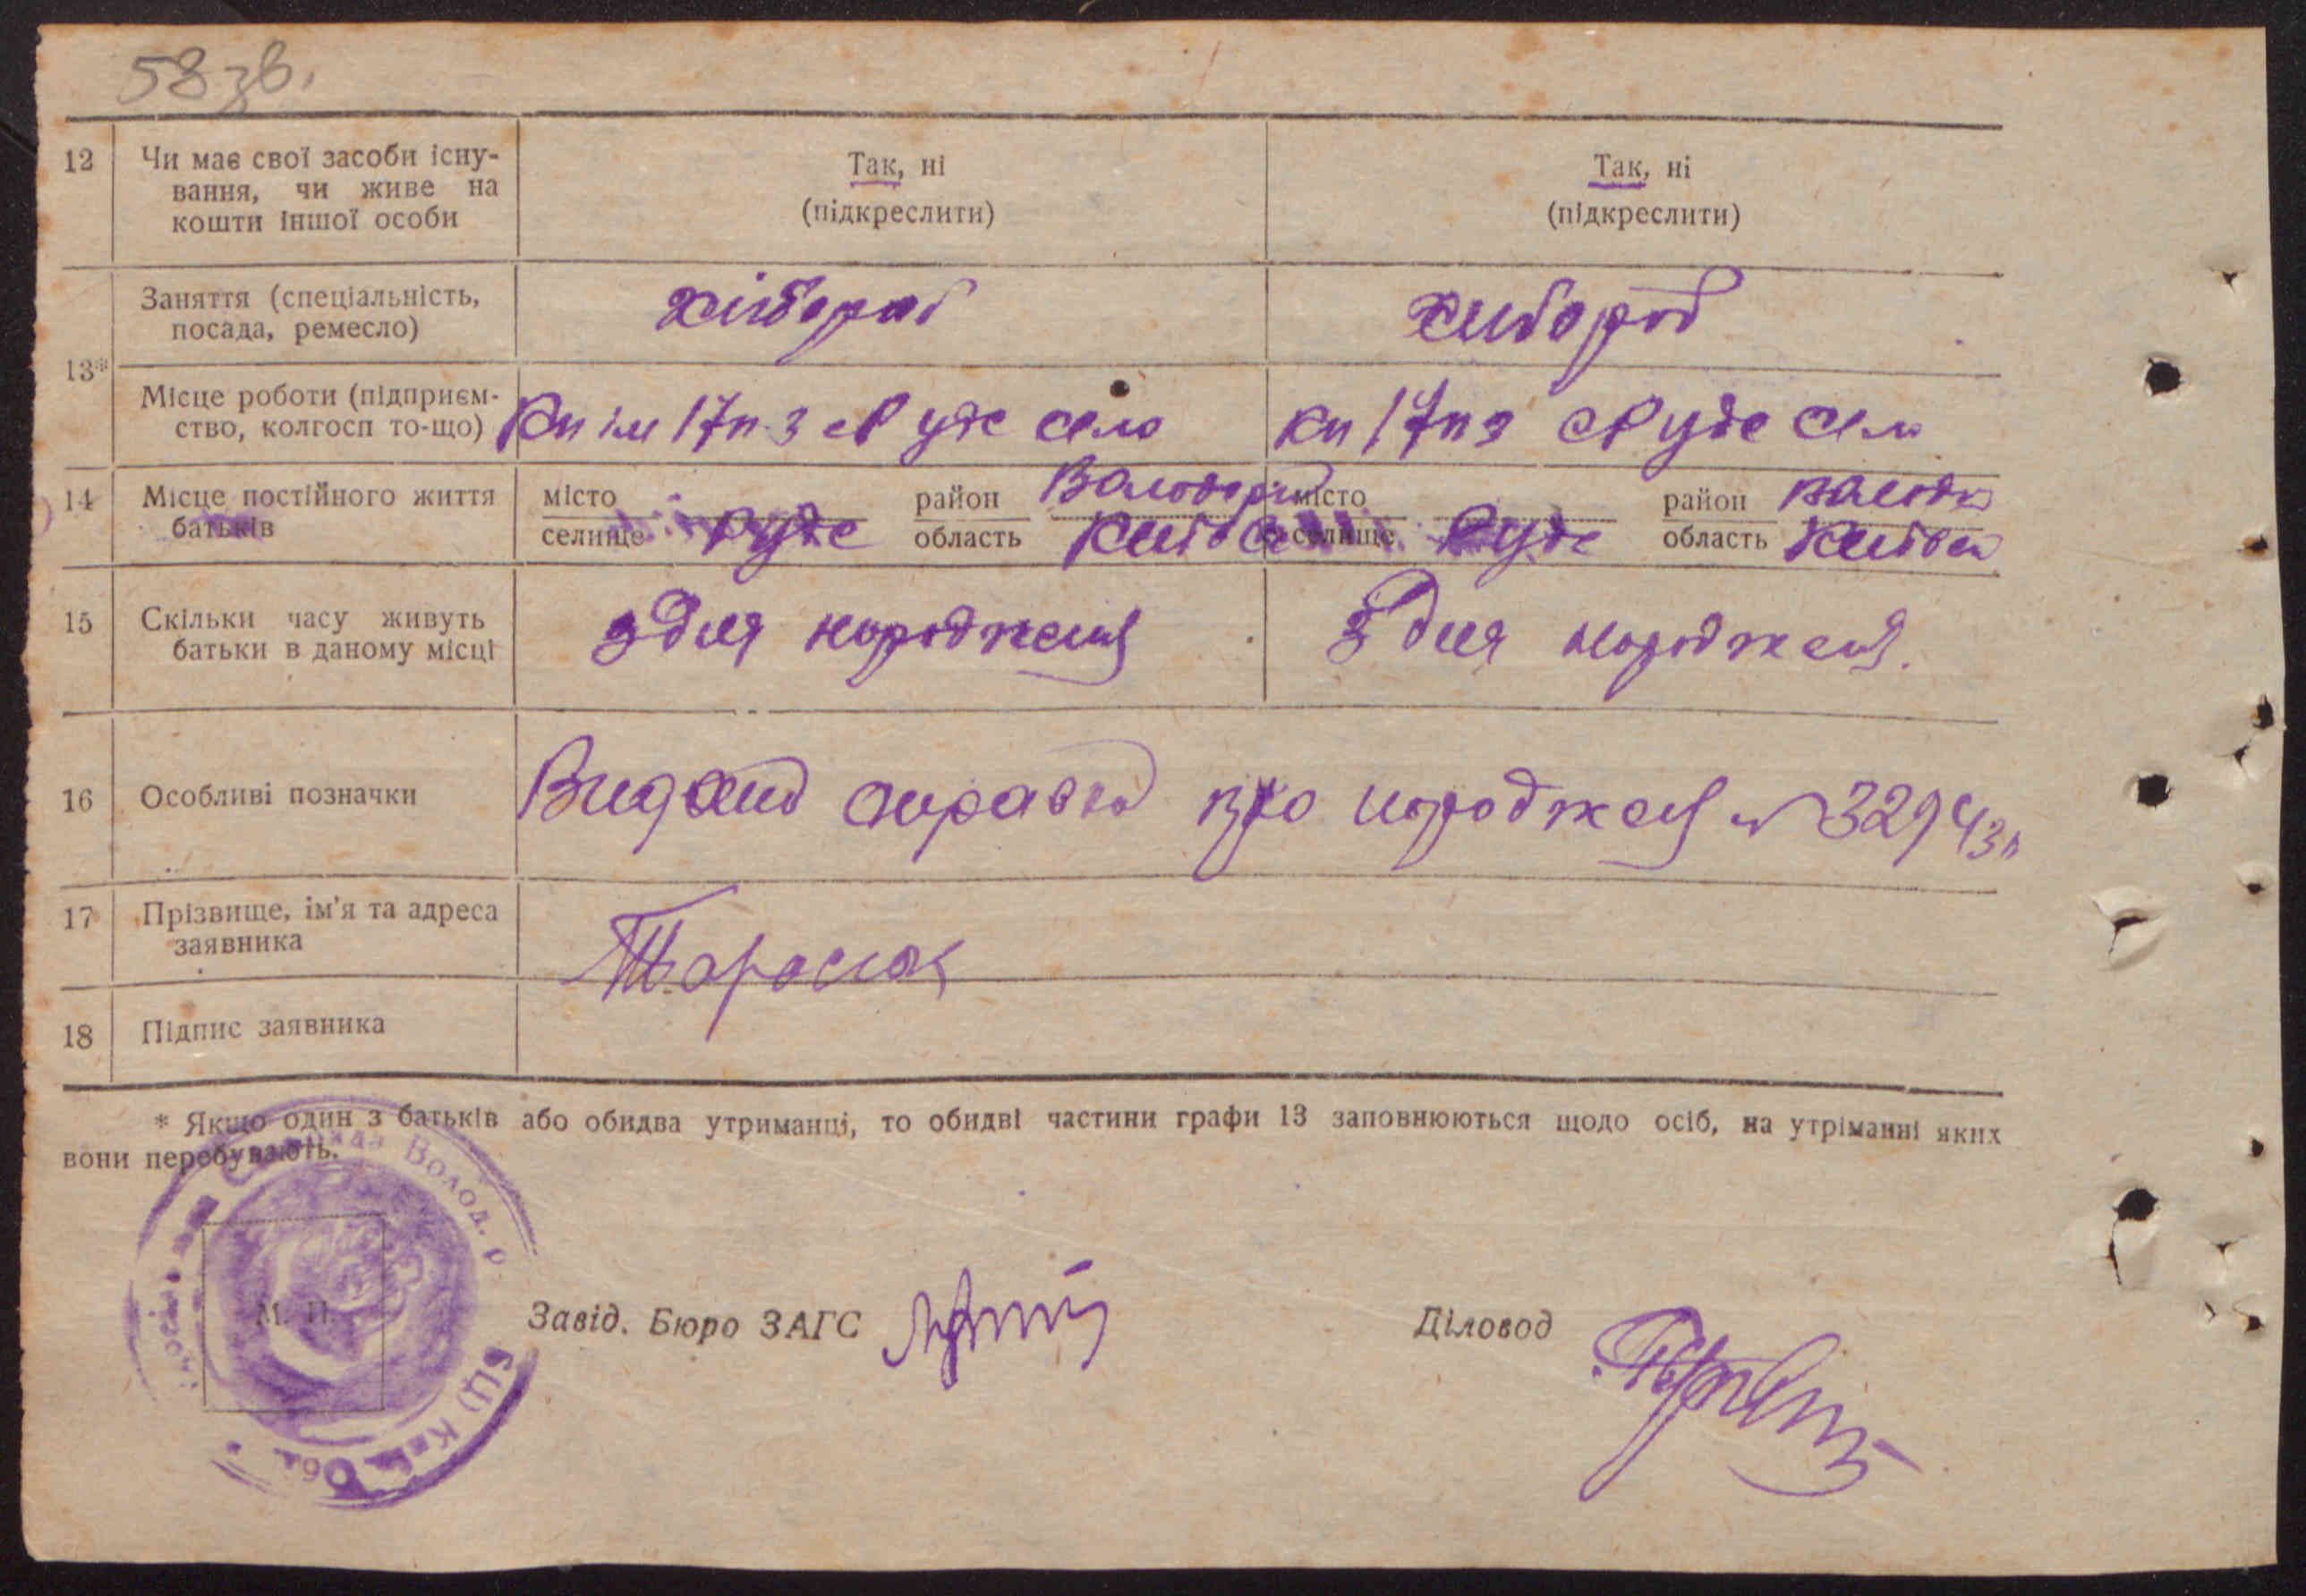 58 зв.
12 Чи має свої засоби існу- Так, ні Так, ні
вання, чи живе на (підкреслити) (підкреслити)
кошти іншої особи
13* Заняття (спеціальність, хлібороб хлібороб
посада, ремесло)
Місце роботи (підприєм- Кп ім 17 п.з Руде село кп 17 п з Руде село
ство, колгосп то-що)
14 Місце постійного життя місто район місто район
батьків селище Руде область селище Руде область
15 Скільки часу живуть з дня народження з дня народження.
батьки в даному місці
16 Особливі позначки Видано справка про народження № 3294
17 Прізвище, ім'я та адреса
заявника
Тарасюк
18 Підпис заявника
* Якщо один з батьків або обидва утриманці, то обидві частини графи 13 заповнюються щодо осіб, на утріманні яких
вони перебувають.
Волод. р
М. П.
Завід. Бюро ЗАГС Діловод